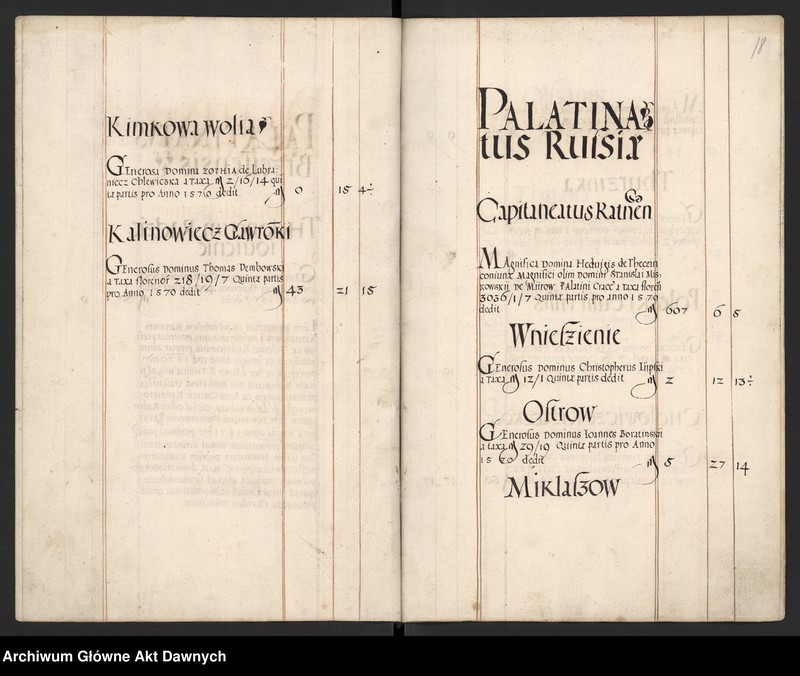 Kimkowa wolia
GEnerosa Domina ZOPHIA de Lubra:
niecz Chlewiczka a Taxa 2/16/14 qui
tæ partis pro Anno 1570 dedit 0 15 4÷
Kalinowiecz Gawronki
GEnerosus Dominus Thomas Dembowski
a Taxa florenor 218/19/7 Quintæ partis
pro Anno 1570 dedit 43 21 15
18
PALATINA
tus Russiæ
Capitaneatus Ratnen
MAgnifica Domina Heduigis de Theczin
coniunx Magnifici olim Domini Stanislai Mis
kowskij De Mirow Palatini Cracc a Taxa floren
3036/1/7 Quintæ partis pro anno 1570
dedit 607 6 5
Wnieszienie
GEnerosus Dominus Christopherus Lipski
a Taxa 12/1 Quintæ partis dedit 2 12 13÷
Ostrow
GEnerosus Dominus Ioannes Boratinski
a taxa 29/19 Quintæ partis pro Anno
1570 dedit 5 27 14
Miklaszow
Archiwum Główne Akt Dawnych